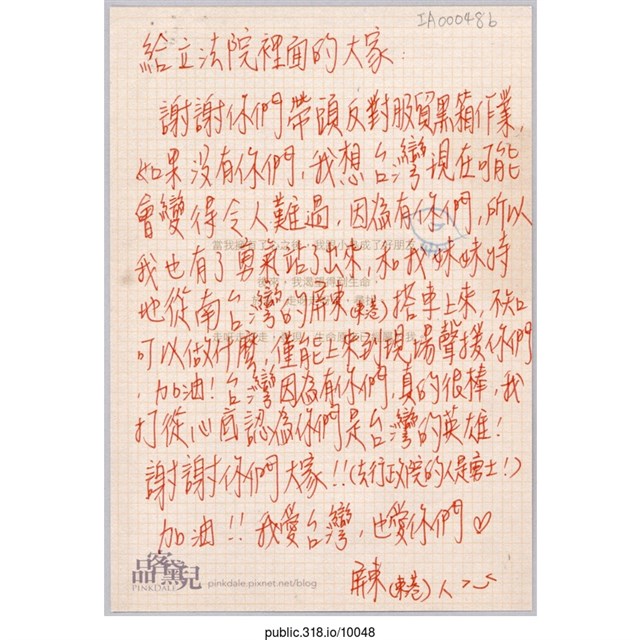 IA000486
給立法院裡面的大家：
謝謝你們帶頭反對服貿黑箱作業，
如果沒有你們，我想台灣現在可能
會變得令人難過，因為有你們，所以
我也有了勇氣站了出來，和我妹妹特
地從南台灣的屏東(東港)搭車上來，不知
可以做什麼，僅能上來到現場聲援你們
，加油！台灣因為有你們，真的很棒，我
打從心底認為你們是台灣的英雄！
謝謝你們大家!!(去行政院的人是勇士!)
加油!! 我愛台灣，也愛你們♡
屏東(東港)人
品客黛兒
PINKDALE
pinkdale.pixnet.net/blog
public.318.io/10048